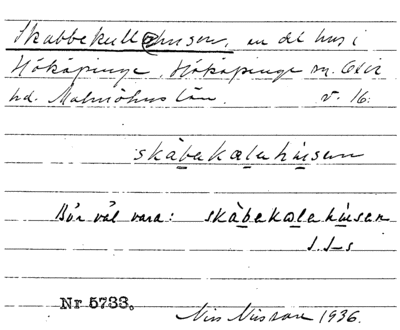 Skabbekullahusen, en del hus i
Hököpinge, Hököpinge sn. Oxie
hd. Malmöhus län. v. 16.
skàbakalahúsan
Bör väl vara: skàbakalahúsan
J. J-s
Nr 5733.
Nils Nilsson 1936.